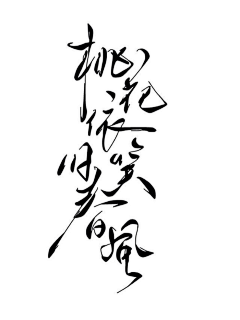 桃花依笑旧春风